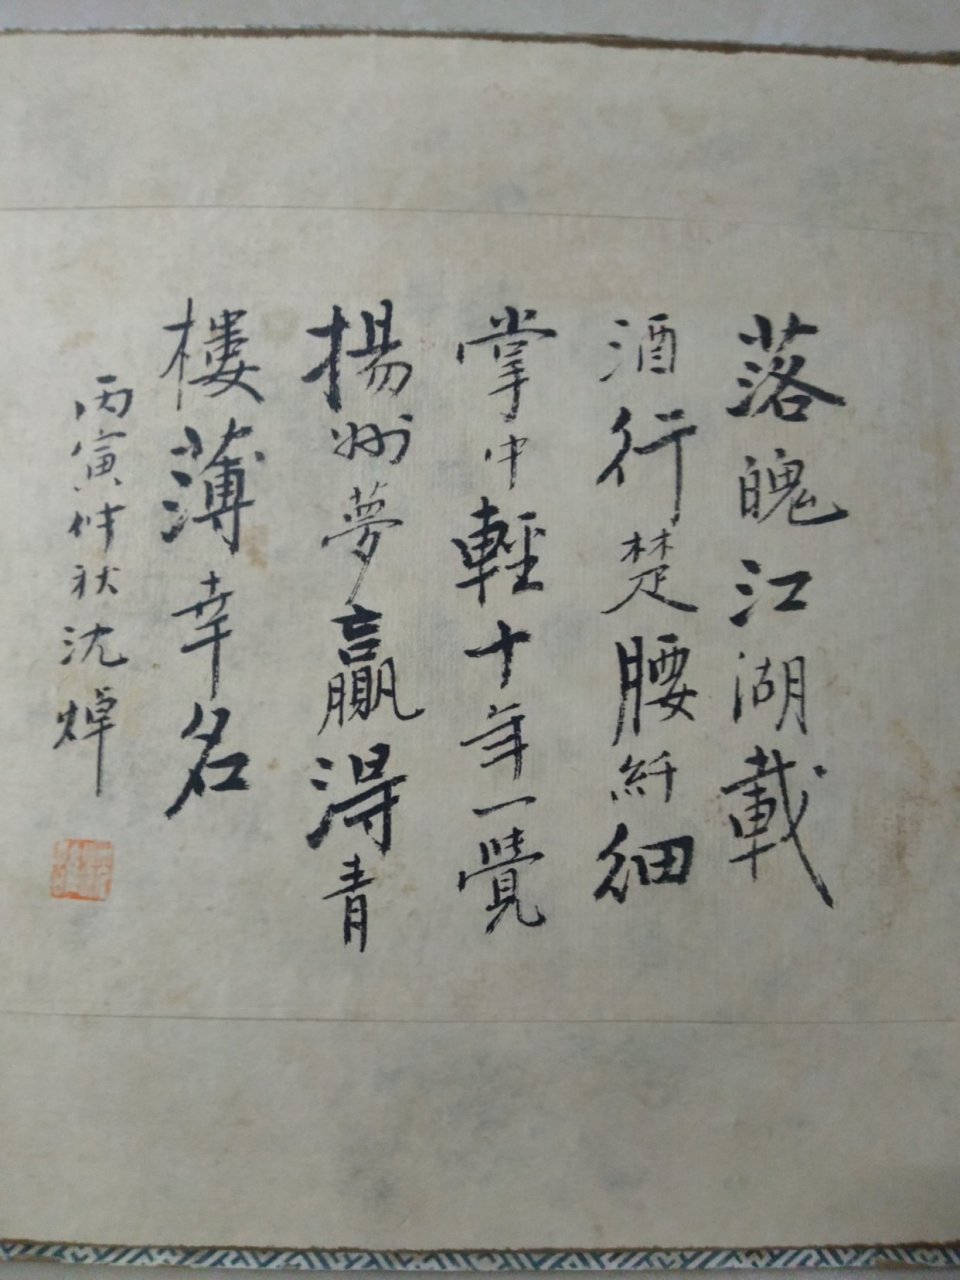 落魄江湖載
酒行楚腰纤细
掌中輕十年一覺
揚州夢贏得青
樓薄幸名
丙寅仲秋沈焯